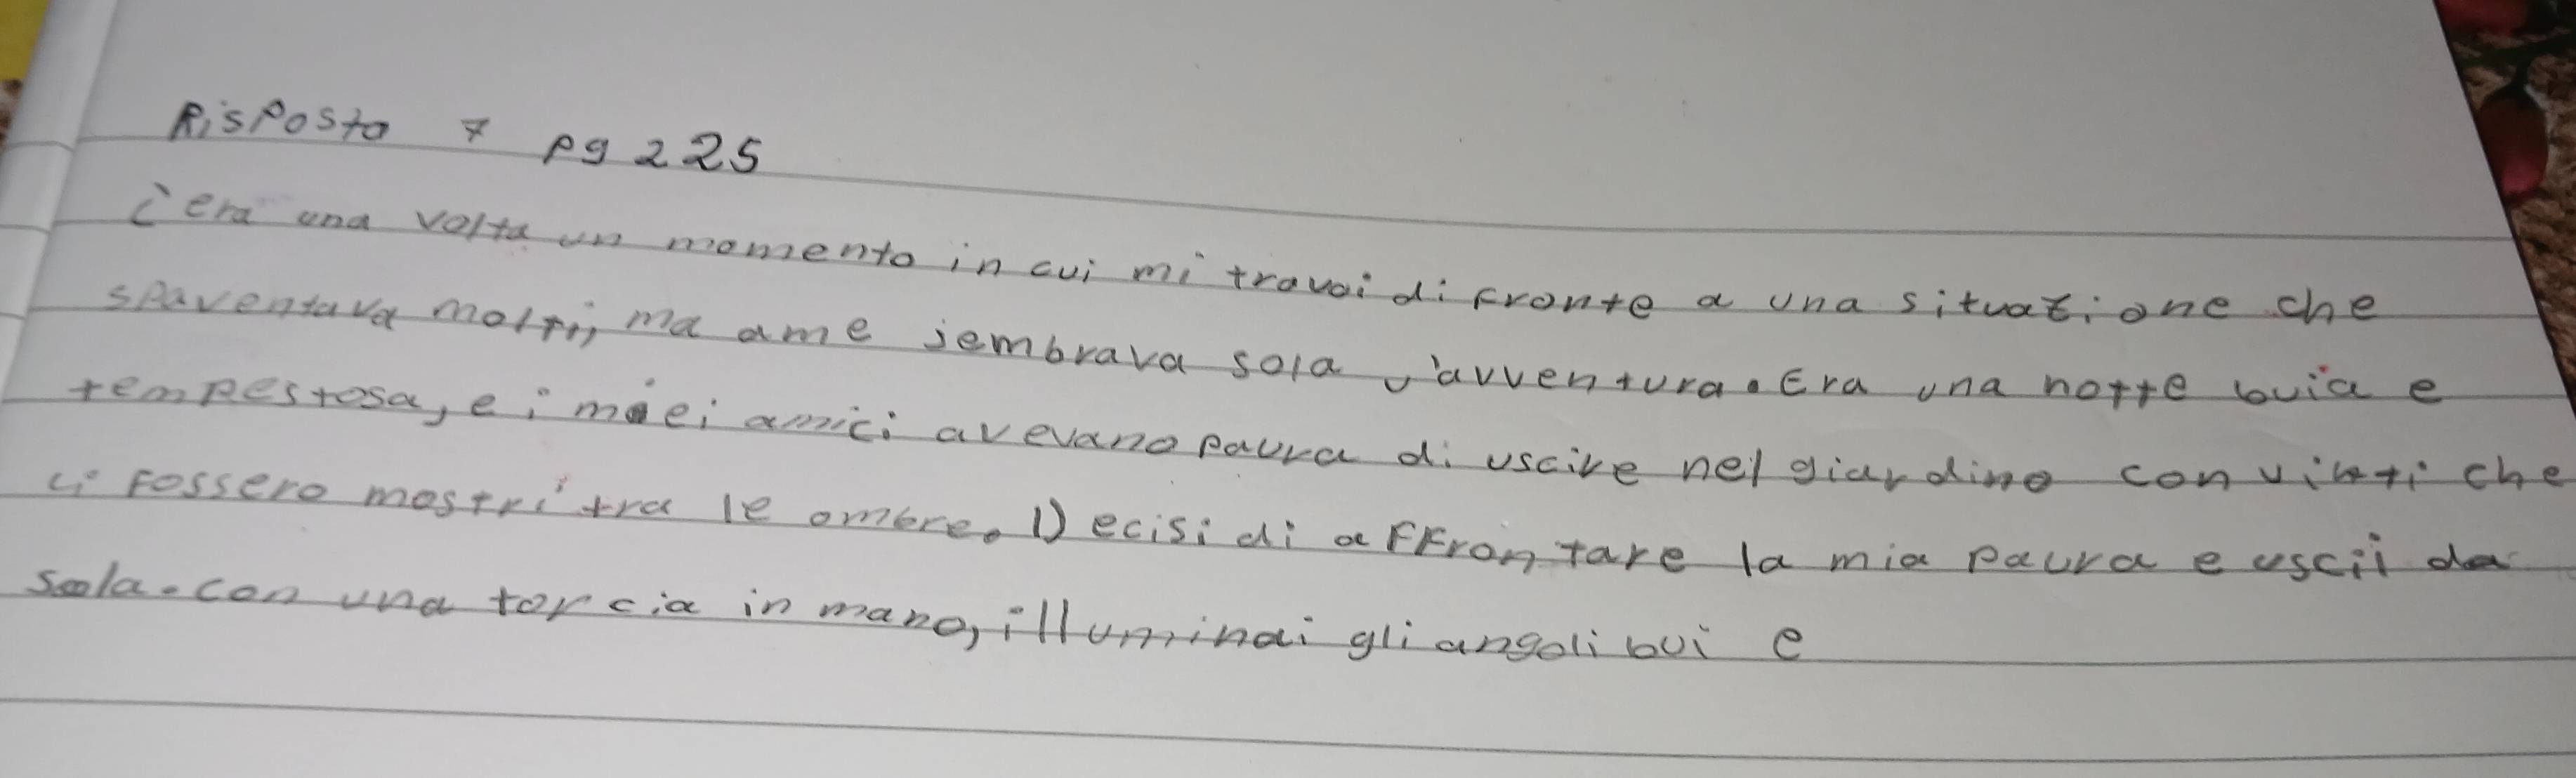 Risposta 7 pg 225
C'era una volta un momento in cui mi trovai di fronte a una situazione che
spaventava molti, ma a me sembrava sola l'avventura. Era una notte buia e
tempestosa, e i miei amici avevano paura di uscire nel giardino convinti che
ci fossero mostri tra le ombre. Decisi di affrontare la mia paura e uscii da
sola. con una torcia in mano, illuminai gli angoli bui e